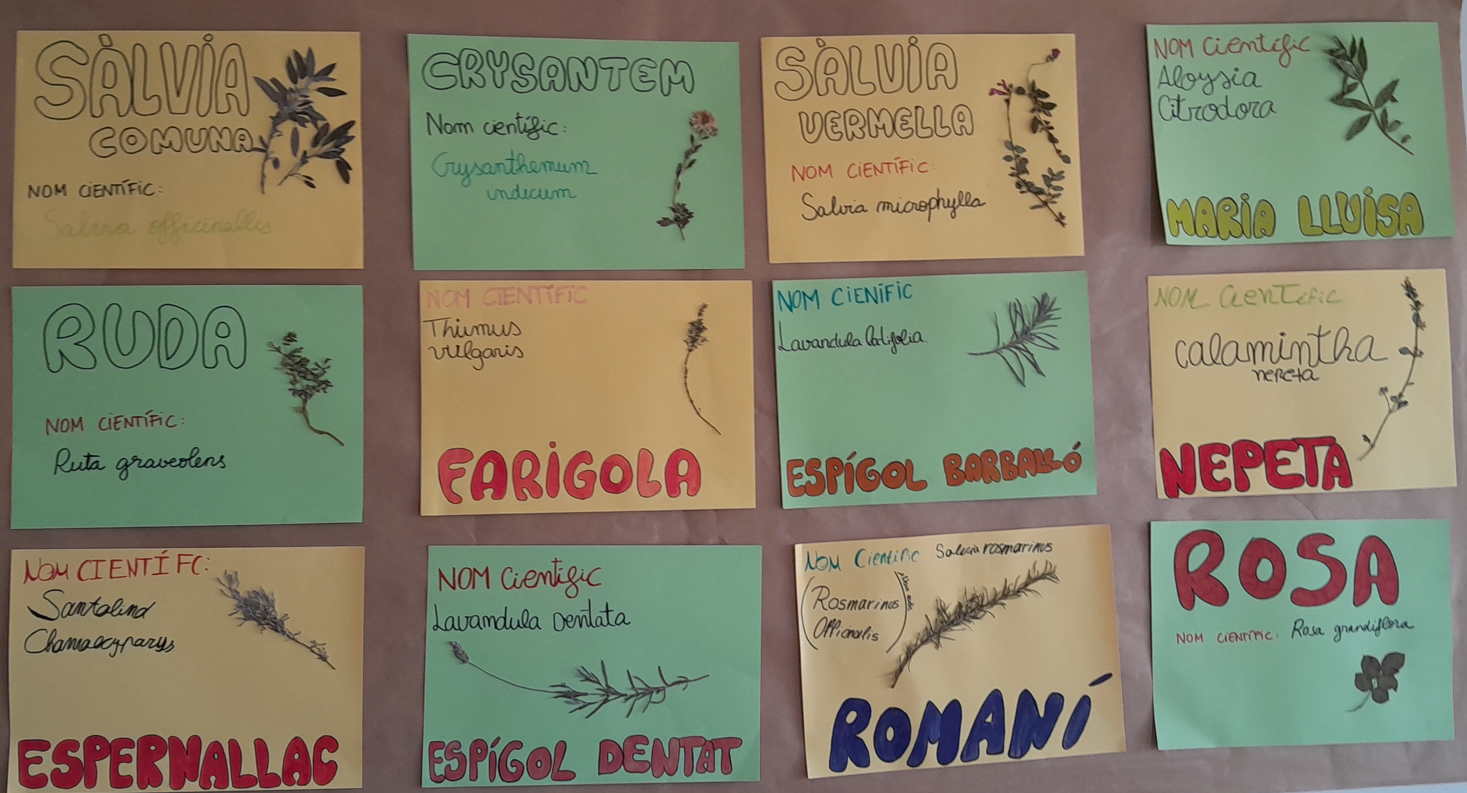 SÀLVIA
COMUNA
NOM CIENTÍFIC:
Salvia officinallis
CRYSANTEM
Nom científic:
Crysanthemum
indicum
SÀLVIA
VERMELLA
NOM CIENTÍFIC:
Salvia microphylla
NOM Científic
Aloysia
Citrodora
MARIA LLUISA
RUDA
NOM CIENTÍFIC:
Ruta graveolens
NOM CIENTÍFIC
Thimus
vulgaris
FARIGOLA
NOM CIENIFIC
Lavandula latifolia
ESPÍGOL BARBALLÓ
NOM CIENTIFIC
calamintha
nepeta
NEPETA
NOM CIENTÍFC:
Santolina
Chamaecyparys
ESPERNALLAC
NOM Científic
Lavandula Dentata
ESPÍGOL DENTAT
NOM Científic Salvia rosmarinus
(Rosmarinus
Officinalis)
ROMANÍ
ROSA
NOM CIENTÍFIC: Rosa grandiflora